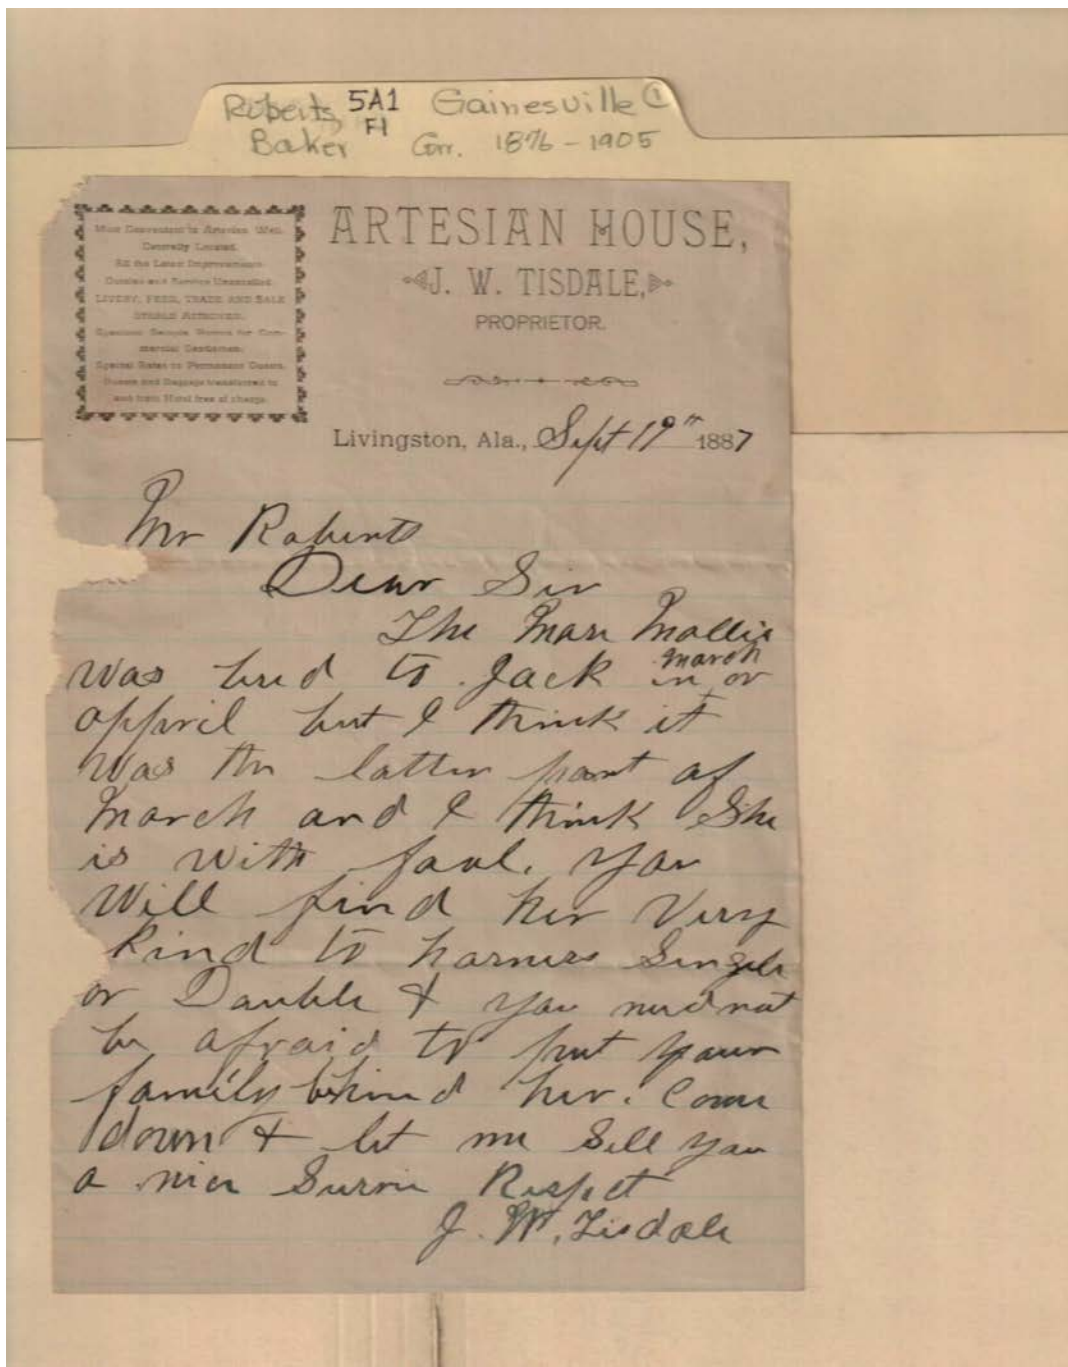 Roberts, 5A1 Gainesville ①
Baker F1 Corr. 1876-1905
Most Convenient to Artesian Well.
Centrally Located.
All the Latest Improvements.
Cuisine and Service Unexcelled.
LIVERY, FEED, TRADE AND SALE
STABLE ATTACHED.
Specious Sample Rooms for Com-
mercial Gentlemen.
Special Rates to Permanent Guests.
Guests and Baggage transferred to
and from Hotel free of charge.
ARTESIAN HOUSE,
J. W. TISDALE,
PROPRIETOR.
Livingston, Ala., Sept 19th 1887
Mr Roberts
Dear Sir
The Mare Mollie
was bred to Jack in March or
appril but I think it
was the latter part of
March and I think She
is with foal. you
will find her Very
Kind to harness Single
or Double & you need not
be afraid to put your
family behind her. Come
down & let me Sell you
a nice Surrie Respect
J. W. Tisdale